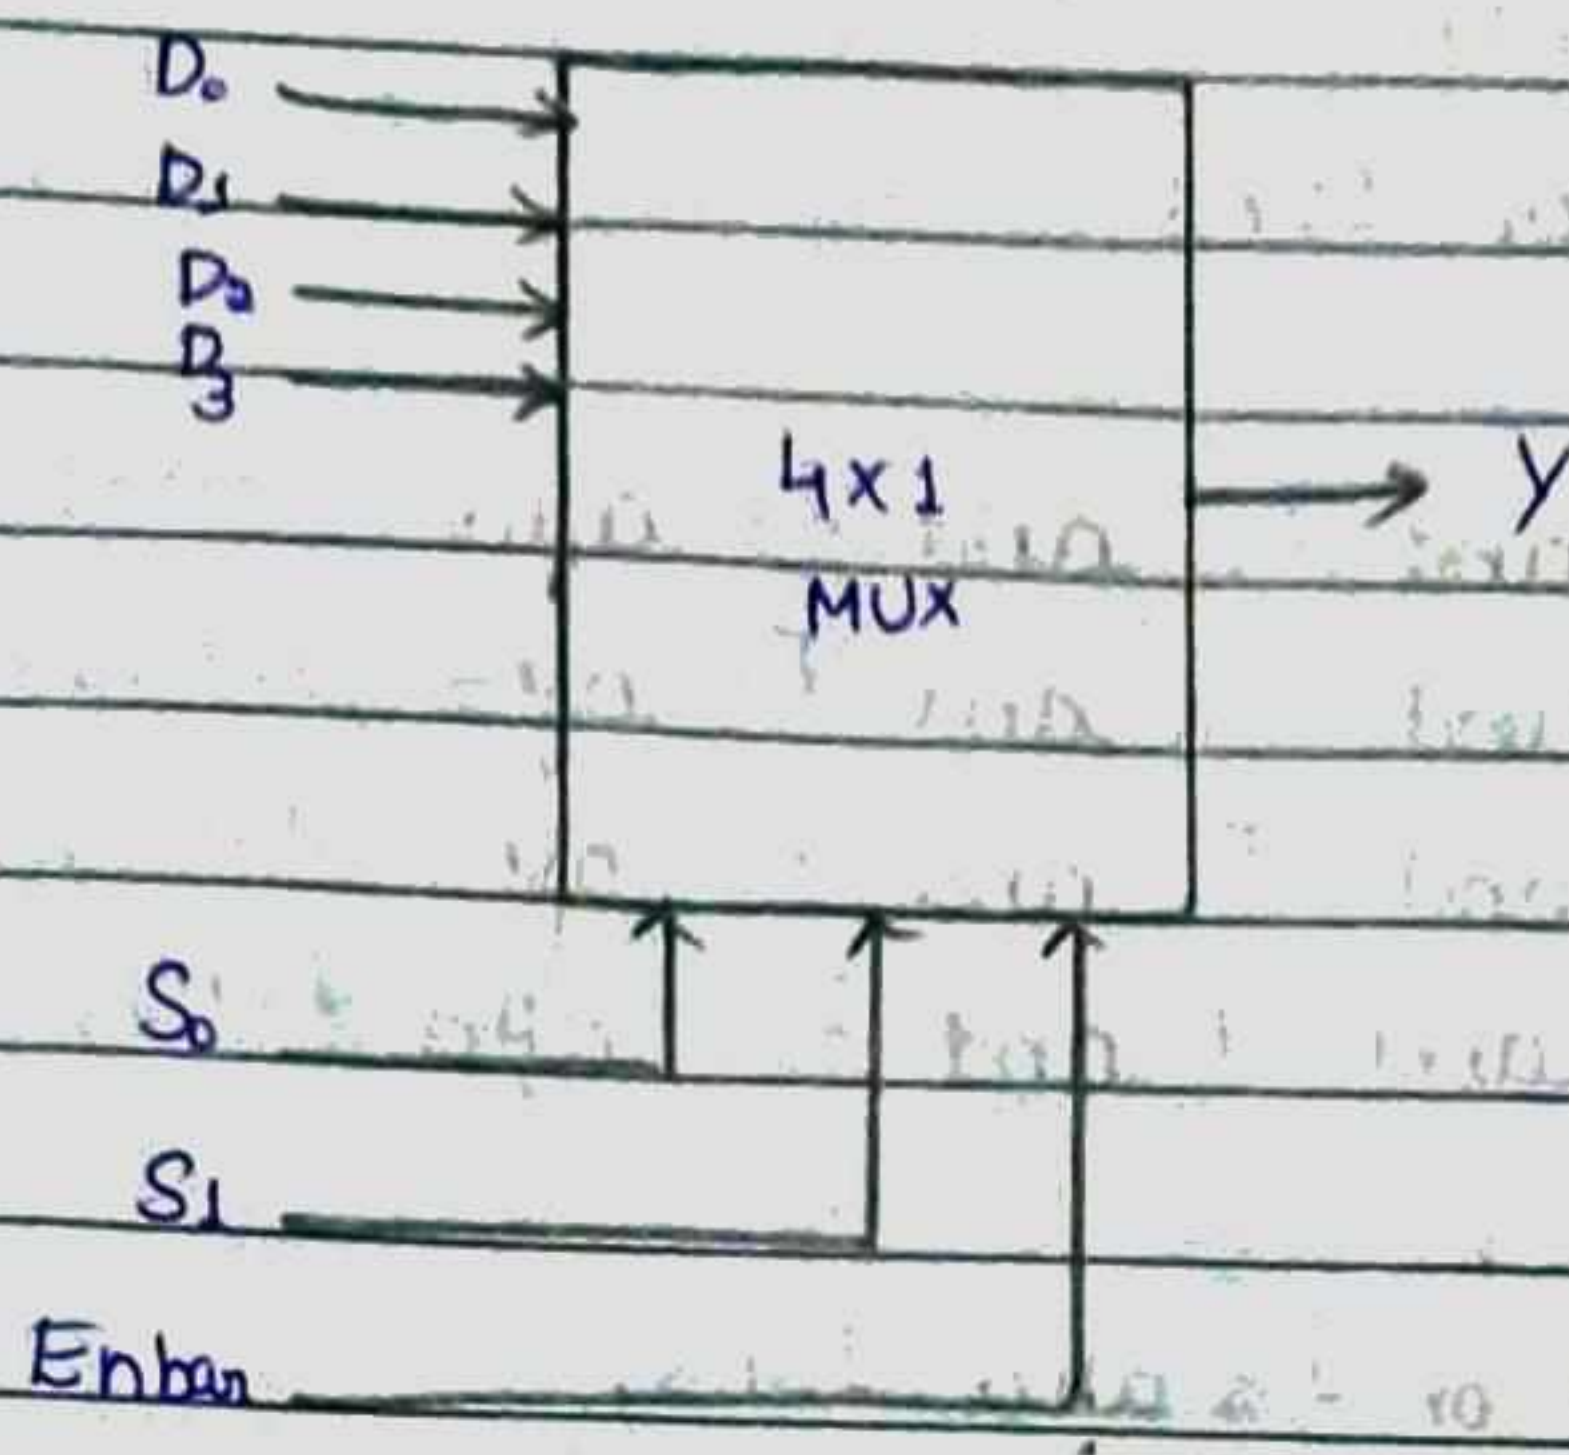 D₀
D1
D2
D3
4x1
MUX
Y
S₀
S1
Enbar